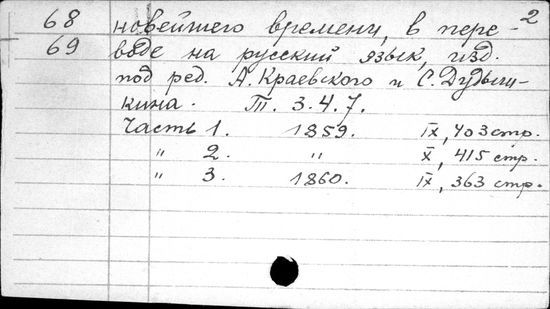 68 новейшего времени, в пере- -2
69 воде на русский язык, изд.
под ред. А. Краевского и С. Дудыш-
кина. Т. 3. 4. 7.
Часть 1. 1859. IX, 403 стр.
" 2. " X, 415 стр.
" 3. 1860. IX, 363 стр.